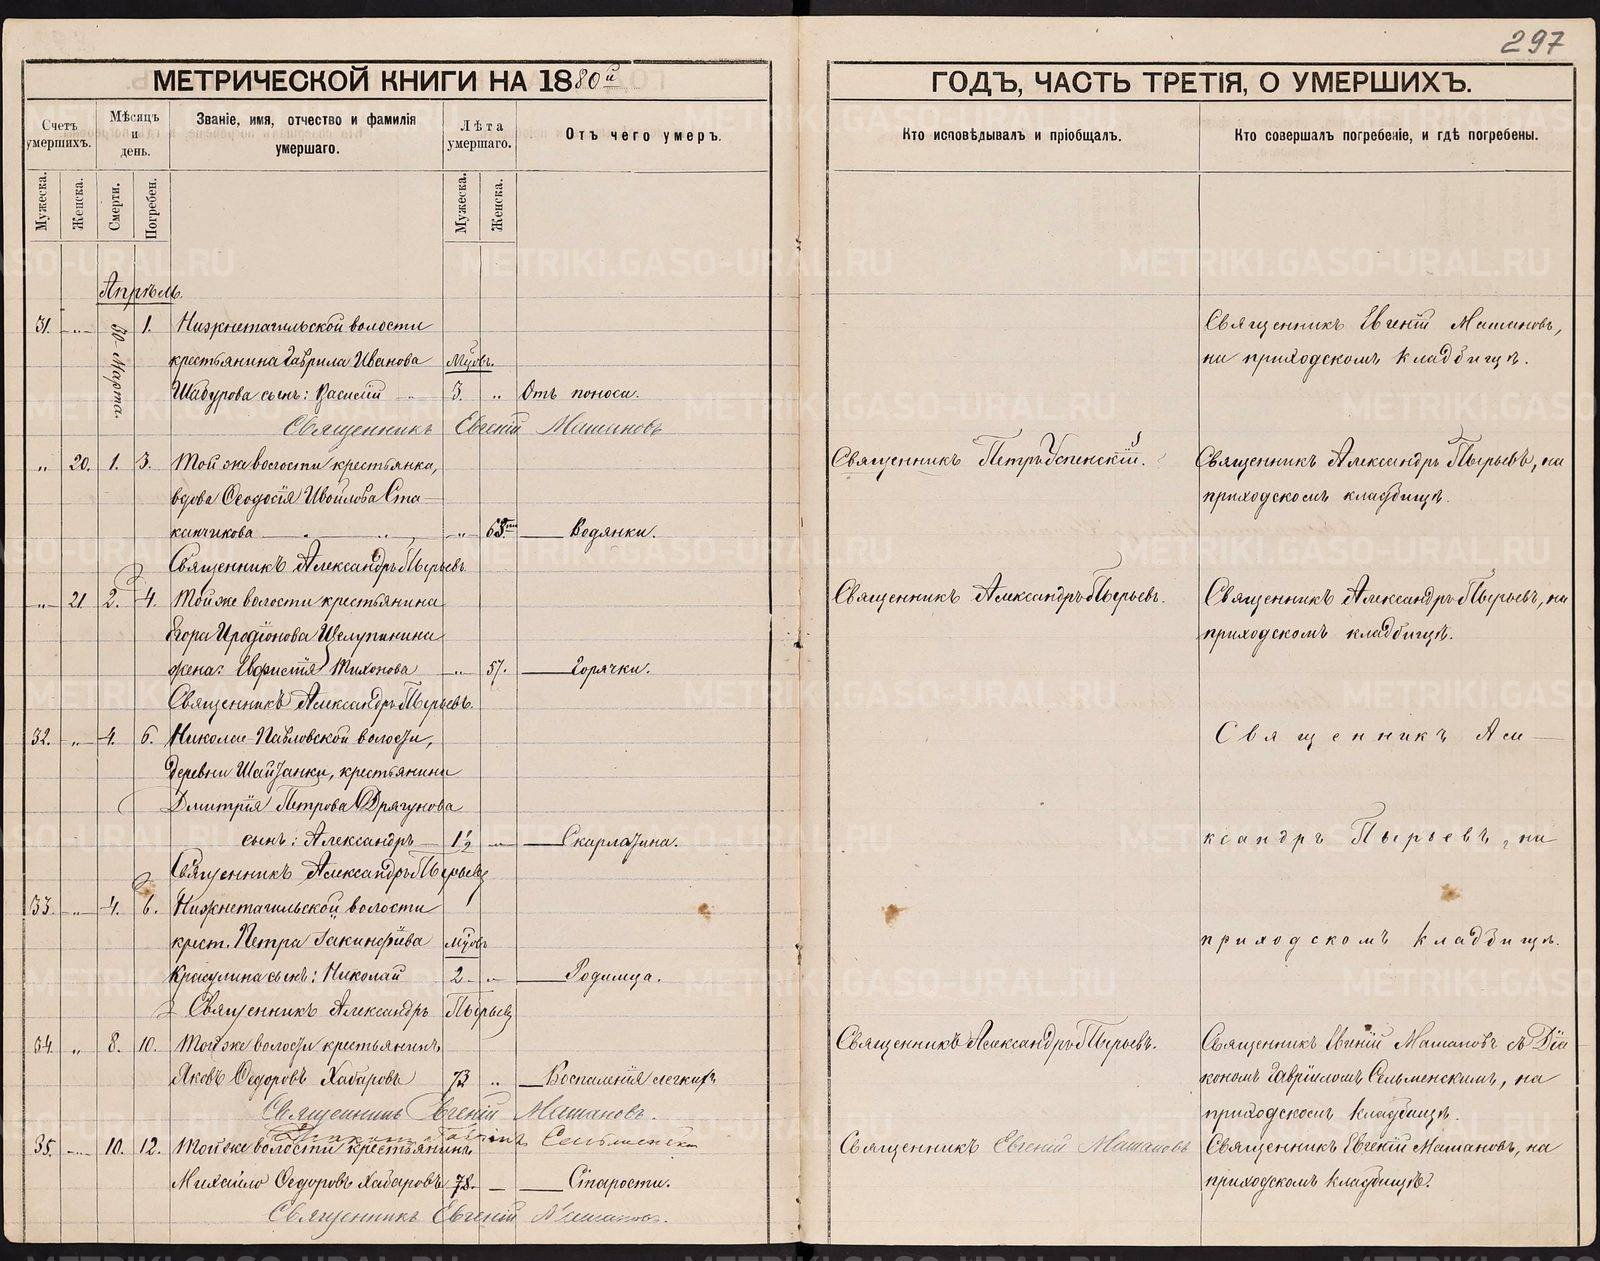 297
МЕТРИЧЕСКОЙ КНИГИ НА 1880й
ГОДЪ, ЧАСТЬ ТРЕТІЯ, О УМЕРШИХЪ.
Счетъ умершихъ.
Мѣсяцъ и день.
Званіе, имя, отчество и фамилія умершаго.
Лѣта умершаго.
Отъ чего умеръ.
Кто исповѣдывалъ и пріобщалъ.
Кто совершалъ погребеніе, и гдѣ погребены.
Мужеска.
Женска.
Смерти.
Погребен.
Мужеска.
Женска.
Апрѣль.
31. „ 30 Марта. 1. Нижнетагильской волости
крестьянина Гаврила Иванова Мцовъ.
Шадурова сынъ: Василій 3. „ Отъ поноса.
Священникъ Евгеній Машановъ
Священникъ Евгеній Машановъ,
на приходскомъ кладбищѣ.
„ 20. 1. 3. Той же волости крестьянка,
вдова Ѳеодосія Ивойлова Ста-
канчикова „ 63. Водянки.
Священникъ Александръ Пырьевъ
Священникъ Петръ Успенскій.
Священникъ Александръ Пырьевъ, на
приходскомъ кладбищѣ.
„ 21. 2. 4. Той же волости крестьянина
Егора Иродіонова Щелупинина
жена: Евфистія Тихонова „ 57. Горячки.
Священникъ Александръ Пырьевъ.
Священникъ Александръ Пырьевъ.
Священникъ Александръ Пырьевъ, на
приходскомъ кладбищѣ.
32. „ 4. 6. Николае-Павловской волости,
деревни Шайтанки, крестьянина
Дмитрія Петрова Дрягунова
сынъ: Александръ 1½ „ Скарлатина.
Священникъ Александръ Пырьевъ
33. „ 4. 6. Нижнетагильской волости
крест. Петра Іакинфіева мцовъ
Красулина сынъ: Николай 2 „ Родимца.
Священникъ Александръ Пырьевъ
Священникъ Але-
ксандръ Пырьевъ, на
приходскомъ кладбищѣ.
34. „ 8. 10. Той же волости крестьянинъ,
Яковъ Ѳедоровъ Хабаровъ 73 „ Воспаленія легкихъ
Священникъ Евгеній Машановъ.
Діаконъ Гавріилъ Сельменскій
Священникъ Александръ Пырьевъ.
Священникъ Евгеній Машановъ съ Діа-
кономъ Гавріиломъ Сельменскимъ, на
приходскомъ кладбищѣ.
35. „ 10. 12. Той же волости крестьянинъ
Михайло Ѳедоровъ Хабаровъ 78. Старости.
Священникъ Евгеній Машановъ.
Священникъ Евгеній Машановъ
Священникъ Евгеній Машановъ, на
приходскомъ кладбищѣ.
METRIKI.GASO-URAL.RU